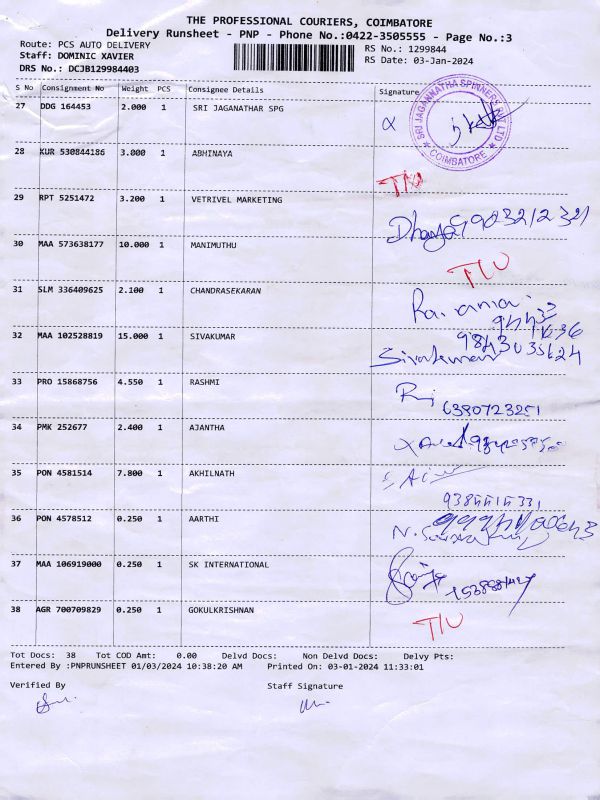 THE PROFESSIONAL COURIERS, COIMBATORE
Delivery Runsheet - PNP - Phone No.:0422-3505555 - Page No.:3
Route: PCS AUTO DELIVERY RS No.: 1299844
Staff: DOMINIC XAVIER RS Date: 03-Jan-2024
DRS No.: DCJB129984403
S No Consignment No Weight PCS Consignee Details Signature
27 DDG 164453 2.000 1 SRI JAGANATHAR SPG
SRI JAGANNATHA SPINNERS PVT LTD
★ COIMBATORE ★
28 KUR 530844186 3.000 1 ABHINAYA
29 RPT 5251472 3.200 1 VETRIVEL MARKETING
30 MAA 573638177 10.000 1 MANIMUTHU
31 SLM 336409625 2.100 1 CHANDRASEKARAN
32 MAA 102528819 15.000 1 SIVAKUMAR
Sivakumar
33 PRO 15868756 4.550 1 RASHMI
6380723251
34 PMK 252677 2.400 1 AJANTHA
35 PON 4581514 7.800 1 AKHILNATH
36 PON 4578512 0.250 1 AARTHI
37 MAA 106919000 0.250 1 SK INTERNATIONAL
38 AGR 700709829 0.250 1 GOKULKRISHNAN
Tot Docs: 38 Tot COD Amt: 0.00 Delvd Docs: Non Delvd Docs: Delvy Pts:
Entered By :PNPRUNSHEET 01/03/2024 10:38:20 AM Printed On: 03-01-2024 11:33:01
Verified By Staff Signature